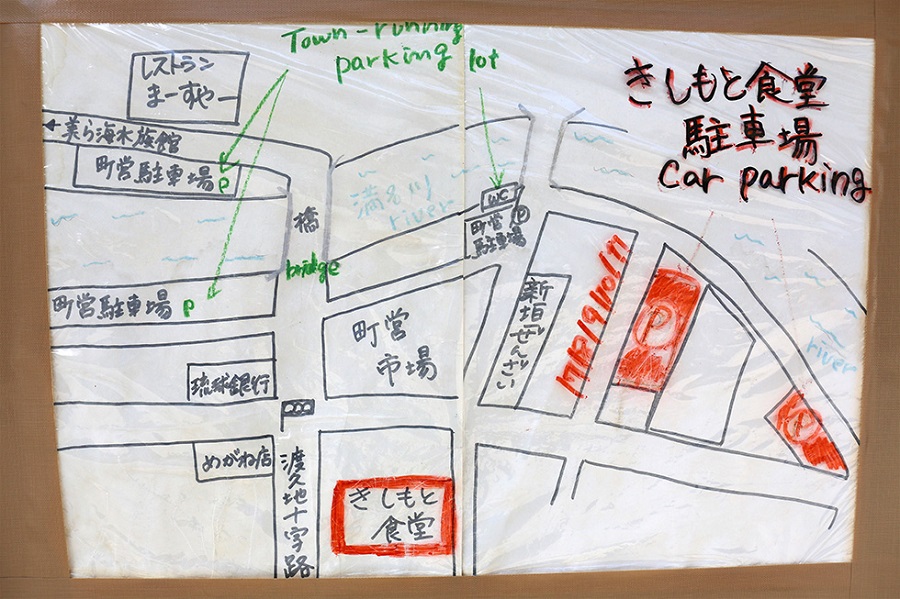 Town-running
parking lot
きしもと食堂
駐車場
Car parking
レストラン
まーすやー
←美ら海水族館
町営駐車場 P
橋
bridge
満名川
river
WC
町営
駐車場
P
町営駐車場 P
町営
市場
新垣ぜんざい
P
P
river
琉球銀行
めがね店
渡久地十字路
きしもと
食堂